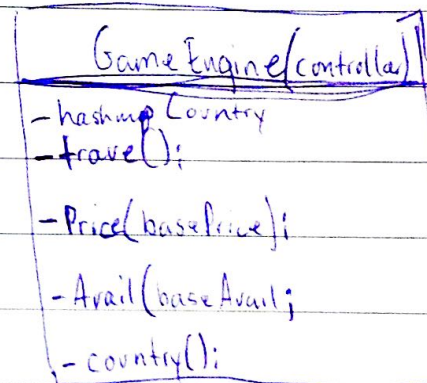 GameEngine(controller)
- hashmap Country
- trave();
- Price(basePrice);
- Avail(baseAvail;
- country();